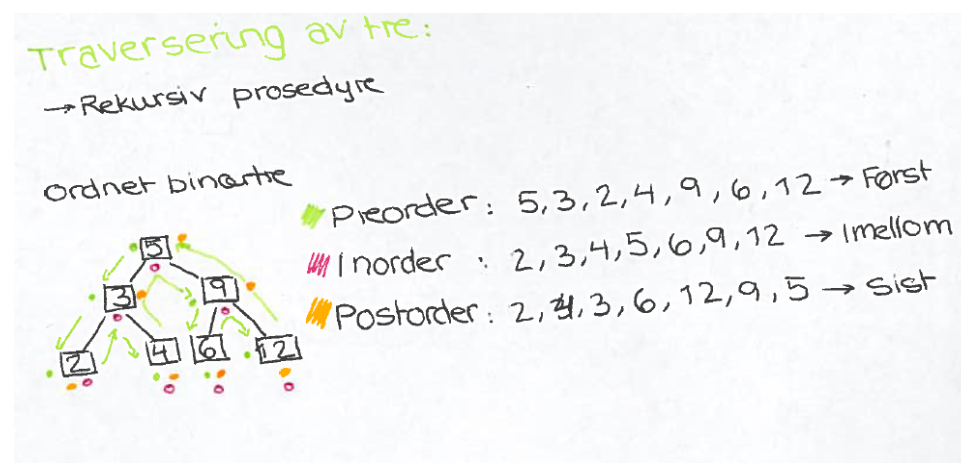 Traversering av tre:
→ Rekursiv prosedyre
Ordnet binærtre
Preorder: 5, 3, 2, 4, 9, 6, 12 → Først
Inorder : 2, 3, 4, 5, 6, 9, 12 → Imellom
Postorder: 2, 4, 3, 6, 12, 9, 5 → Sist
5
3 9
2 4 6 12